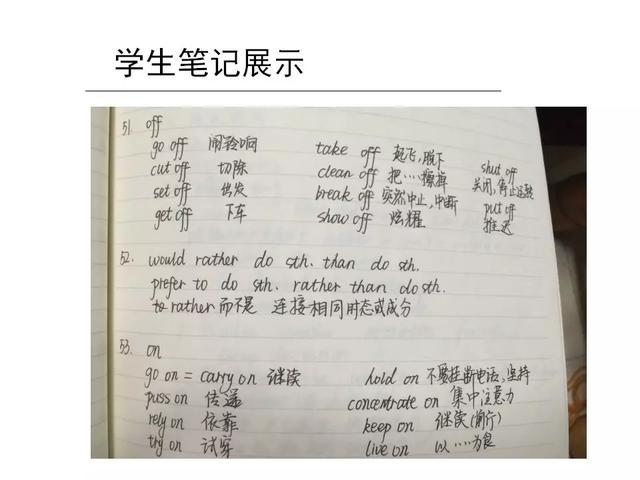 学生笔记展示
51. off
go off 闹铃响 take off 起飞,脱下
cut off 切除 clean off 把....擦掉 shut off
关闭,停止运转
set off 出发 break off 突然中止,中断
get off 下车 show off 炫耀 put off
推迟
52. would rather do sth. than do sth.
prefer to do sth. rather than do sth.
rather 而不是 连接相同时态或成分
53. on
go on = carry on 继续 hold on 不要挂断电话,坚持
puss on 传递 concentrate on 集中注意力
rely on 依靠 keep on 继续(前行)
try on 试穿 live on 以....为食